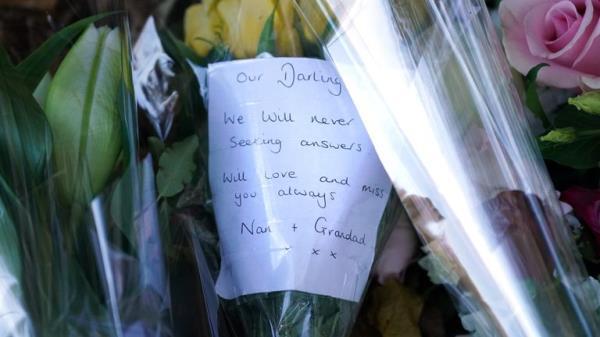 Our Darling
We Will never
Seeking answers
Will Love and miss
you always
Nan + Grandad
x x